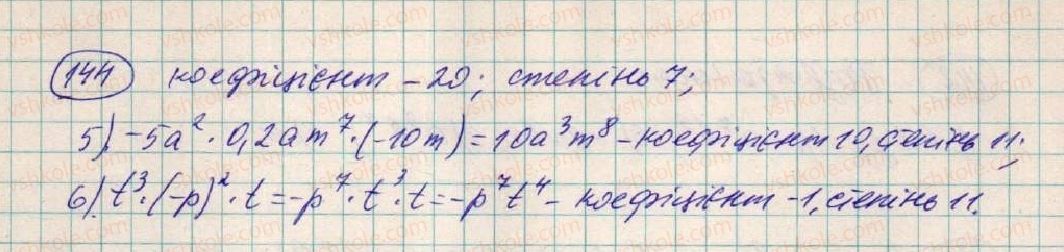 144 коефіцієнт – 20; степінь 7;
5) –5a²·0,2am⁷·(–10m)=10a³m⁸ – коефіцієнт 10, степінь 11;
6) t³·(–p)²·t=–p⁷·t³·t=–p⁷t⁴ – коефіцієнт –1, степінь 11.